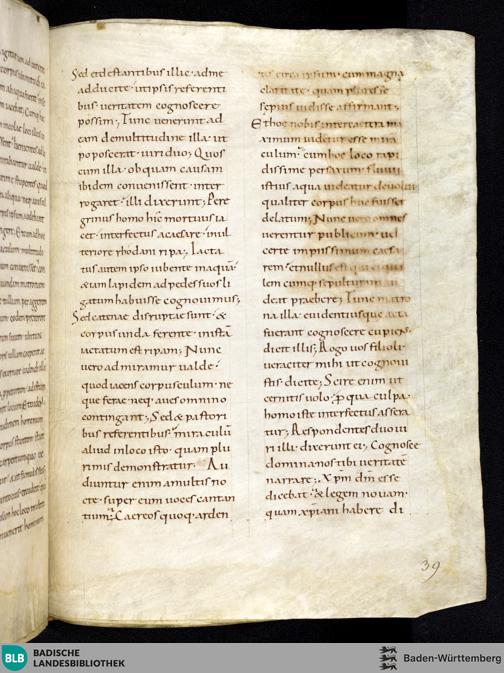 Sed etd estantibus illic · adme
adducite · ut ipsis referenti
bus · veritatem cognoscere
possim ; Tunc venerunt ad
eam demultitudine illa · ut
poposcerat · viri duo ; Quos
cum illa · ob quam causam
ibidem convenissent · inter
rogaret · illi dixerunt ; Pere
grinus homo hic mortuus ia
cet · interfectus a caesare · in ul
teriore rhodani ripa ; Iacta
tus autem ipso iubente in aquā ·
& iam lapidem ad pedes suos li
gatum habuisse cognovimus ;
Sed catenae disruptae sunt · &
corpus unda ferente · in istā
iactatum est ripam ; Nunc
vero ad miramur valde ·
quod iacens corpusculum · ne
que ferae neq · aves omnino
contingant ; Sed & pastori
bus referentibus miraculū
aliud in loco isto · quam plu
rimis demonstratur · Au
diuntur enim a multis no
cte · super eum voces cantan
tium ; Caereos quoq · arden
tes circa ipsum · cum magna
claritate · quam plures se
sepius vidisse affirmant ;
Et hoc nobis inter cetera ma
ximum videtur esse mira
culum · cum hoc loco rapi
dissime per saxum fluvii
istius aqua videatur devolvi
qualiter corpus huc fuisset
delatum ; Nunc vero omnes
verentur publicum vel
certe impussimum caesa
rem · et nullus est qui
lem cumq · sepulturam au
deat praebere ; Tunc matro
na illa · evidentius que acta
fuerant cognoscere cupiens
dicit illis ; Rogo vos filioli ·
veraciter mihi ut cognovi
stis dicite ; Scire enim ut
cernitis volo · p qua culpa ·
homo iste interfectus assera
tur ; Respondentes duo vi
ri illi · dixerunt ei ; Cognosce
domina nos tibi veritatē
narrare ; Xpm dm esse
dicebat · & legem novam ·
quam xpiani habere di
39
BLB BADISCHE
LANDESBIBLIOTHEK
Baden-Württemberg